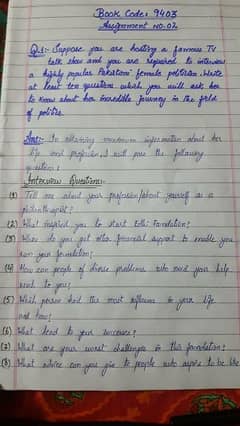 Book Code: 9403
Assignment NO.02
Q.1:- Suppose you are hosting a famous TV
talk show and you are required to interview
a highly popular Pakistani female politician. Write
at least ten questions which you will ask her
to know about her incredible journey in the field
of politics.
Ans:- In obtaining maximum information about her
life and profession, I will pose the following
questions:
Interview Questions:-
(1) Tell me about your profession/about yourself as a
philanthropist?
(2) What inspired you to start this foundation?
(3) Where do you get other financial support to enable you
run your foundation?
(4) How can people of diverse problems who need your help
reach to you?
(5) Which person had the most influence in your life
and how?
(6) What lead to your success?
(7) What are your worst challenges in this foundation?
(8) What advice can you give to people who aspire to be like